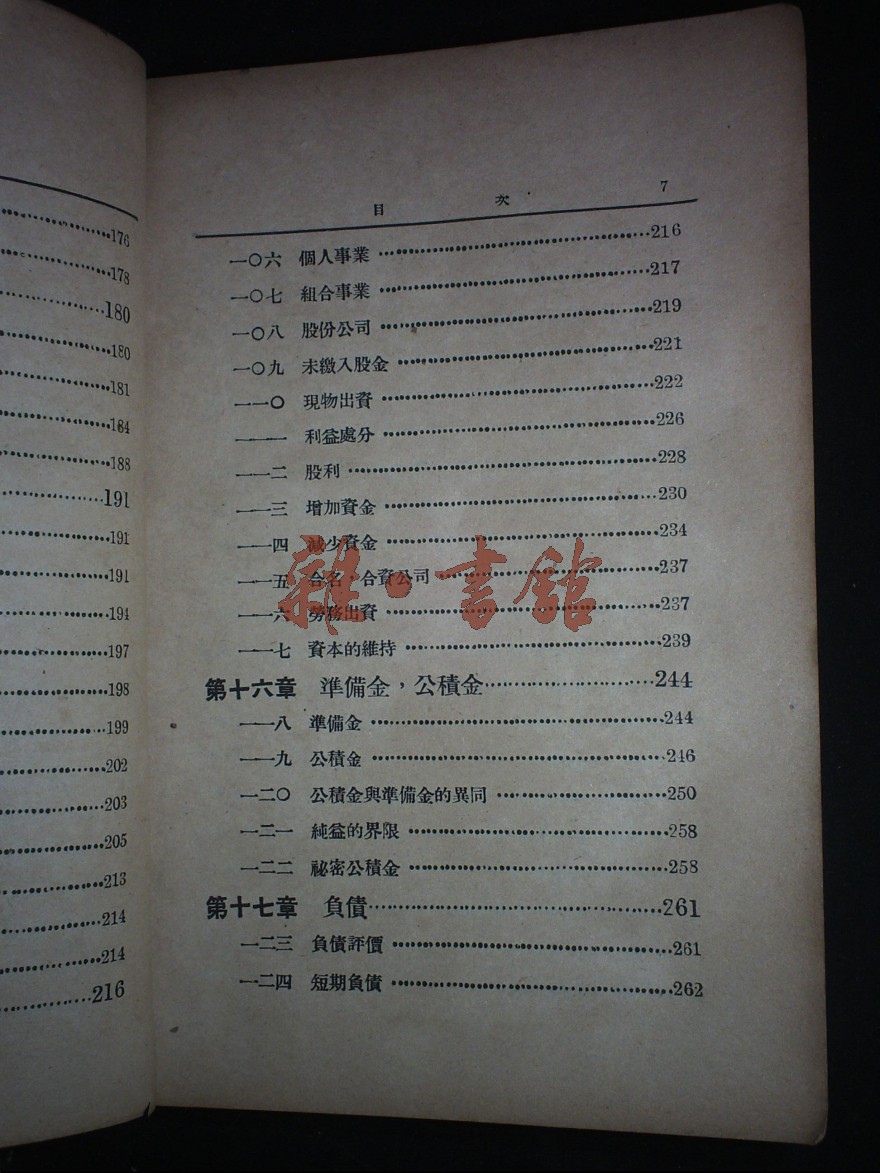 176
178
180
180
181
184
188
191
191
191
194
197
198
199
202
203
205
213
214
214
216
目 次 7
一〇六 個人事業 216
一〇七 組合事業 217
一〇八 股份公司 219
一〇九 未繳入股金 221
一一〇 現物出資 222
一一一 利益處分 226
一一二 股利 228
一一三 增加資金 230
一一四 減少資金 234
一一五 合名・合資公司 237
一一六 勞務出資 237
一一七 資本的維持 239
第十六章 準備金,公積金 244
一一八 準備金 244
一一九 公積金 246
一二〇 公積金與準備金的異同 250
一二一 純益的界限 258
一二二 祕密公積金 258
第十七章 負債 261
一二三 負債評價 261
一二四 短期負債 262
雜・書館